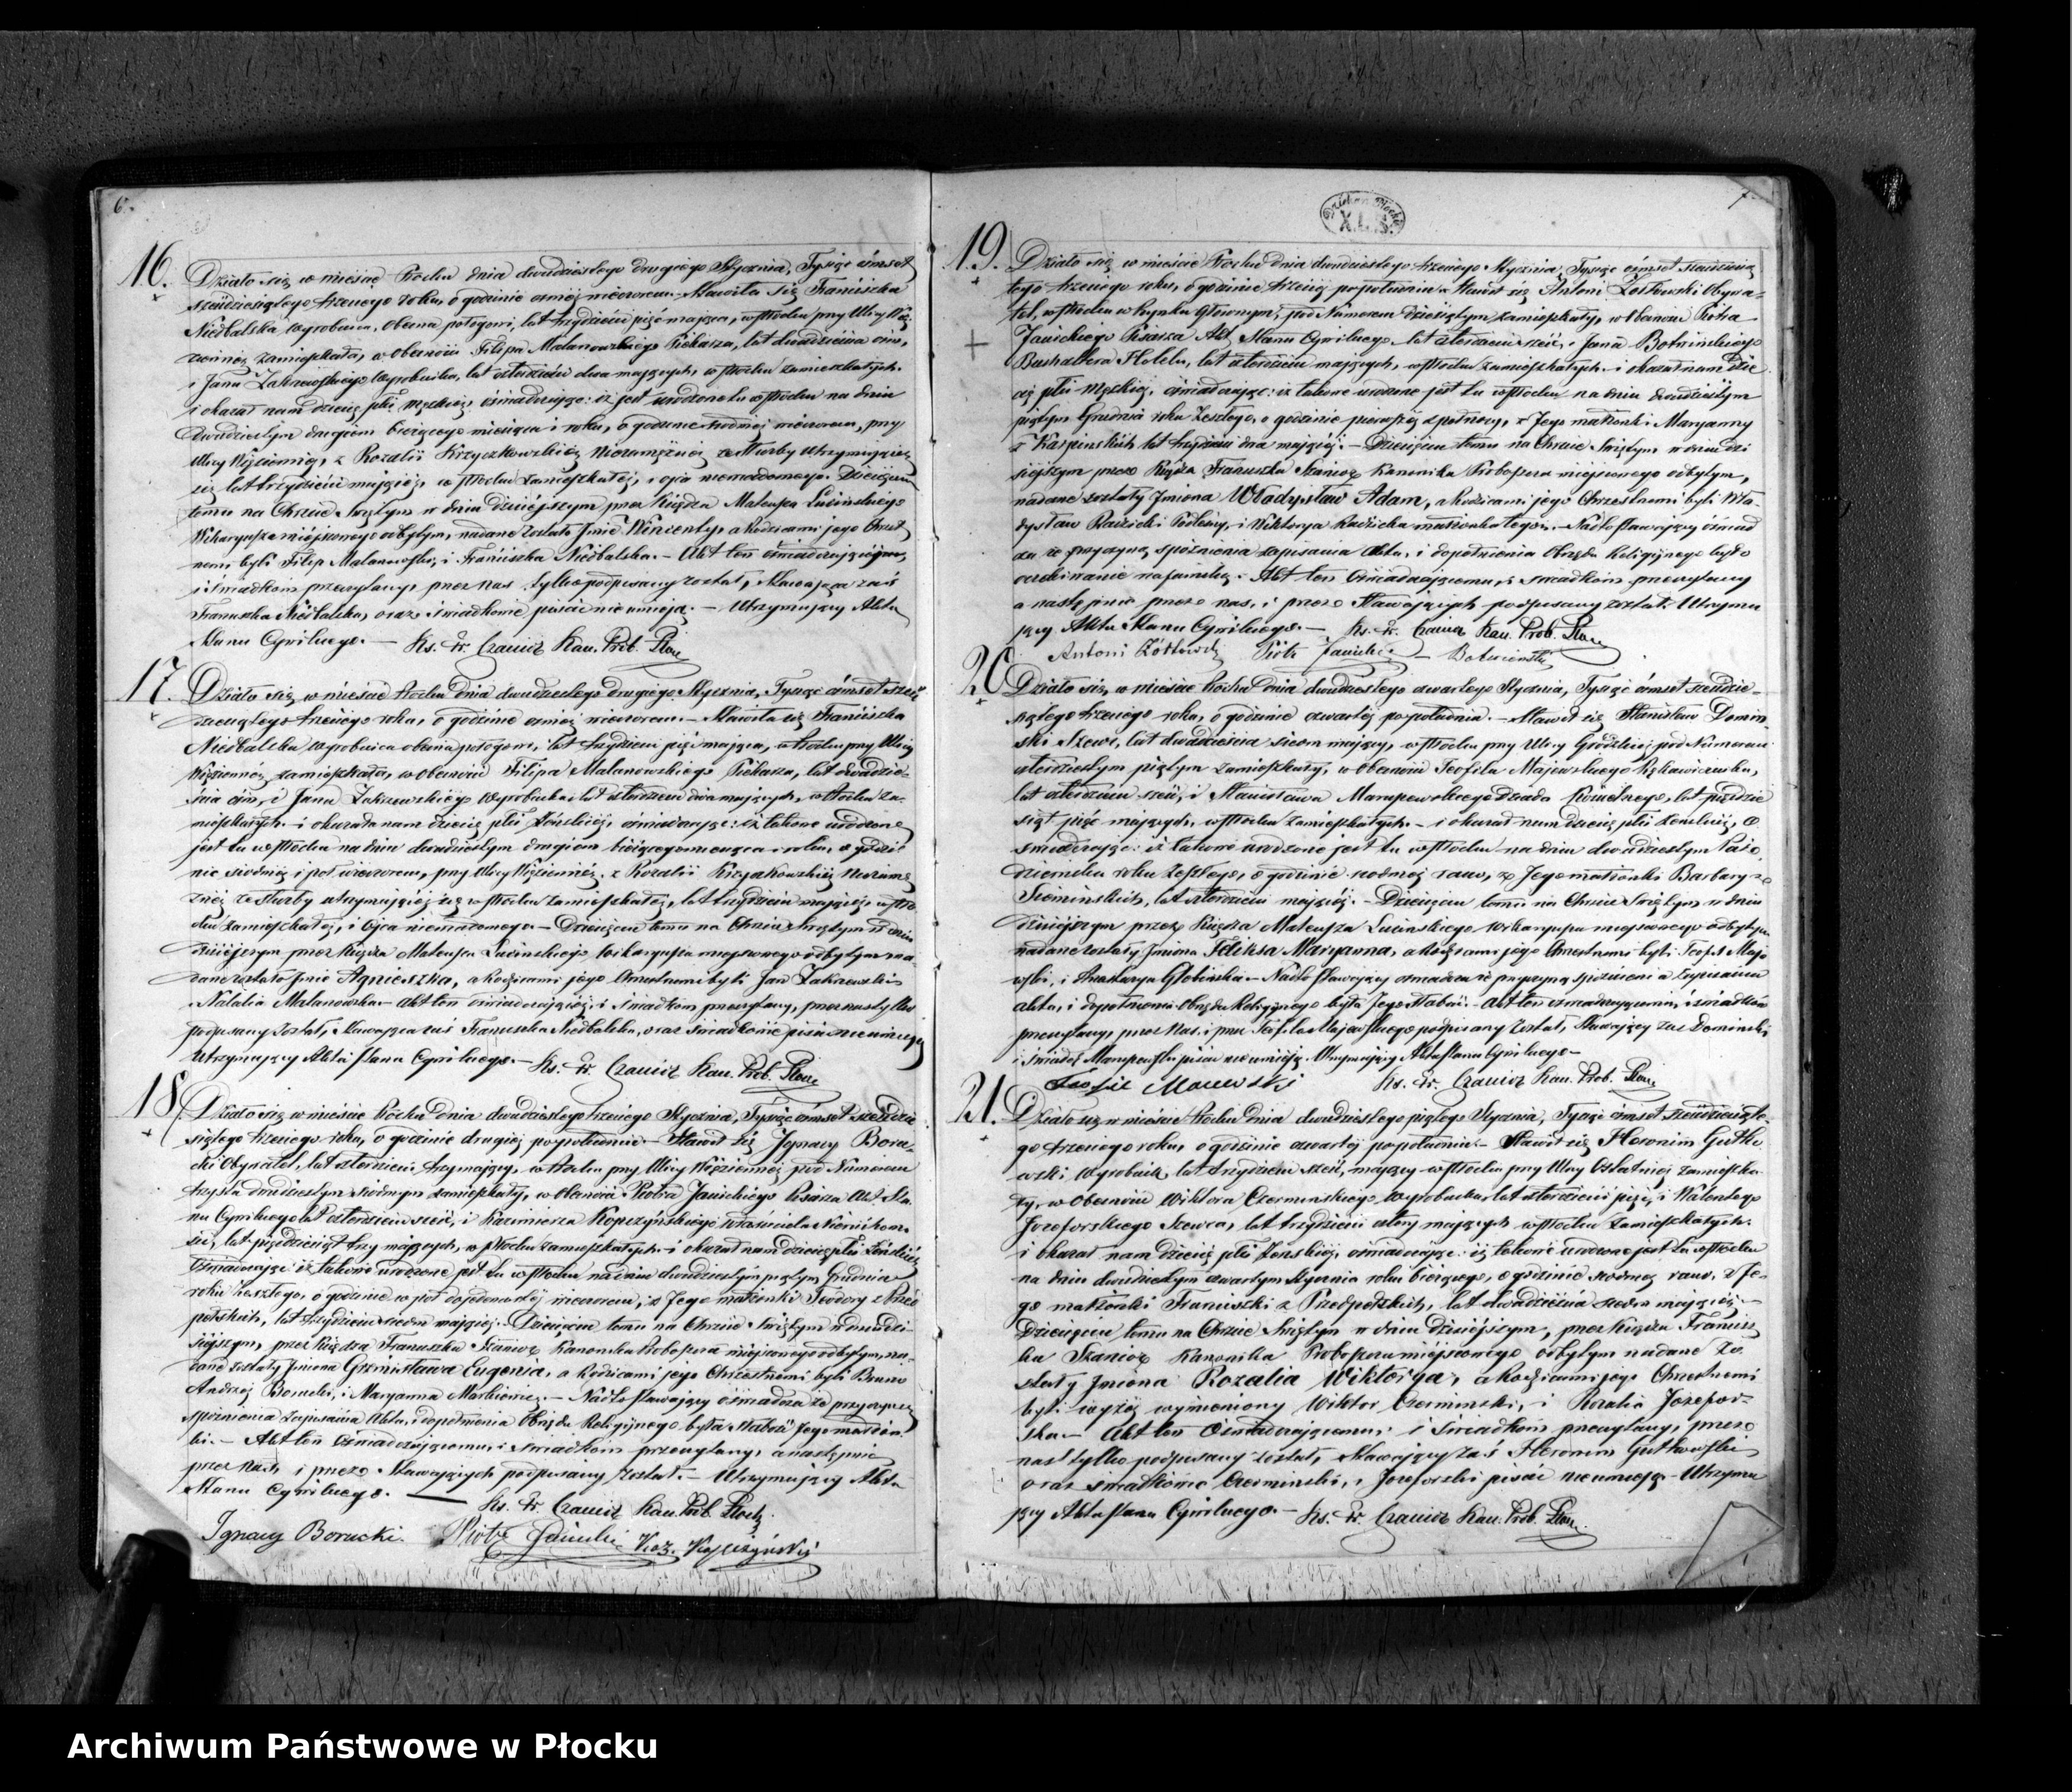 6.
16. Działo się w mieście Płocku dnia dwudziestego drugiego Stycznia, Tysiąc ośmset
sześdziesiątego trzeciego roku, o godzinie osmej wieczorem. Stawiła się Franciszka
Niedbalska wyrobnica, obecna połogowi, lat trzydzieści pięć mająca, w Płocku przy Ulicy Wię-
ziennej zamieszkała, w obecności Filipa Malanowskiego Piekarza, lat dwadzieścia ośm,
i Jana Zakrzewskiego wyrobnika, lat czterdzieści dwa mających, w Płocku zamieszkałych
i okazał nam dziecię płci męzkiej, oświadczając: iż jest urodzone tu w Płocku na dniu
dwudziestym drugim bieżącego miesiąca i roku, o godzinie siódmej wieczorem, przy
Ulicy Więziennej, z Rozalii Krzyczkowskiej Niezamężnej ze służby utrzymującej
się, lat trzydzieści mającej, w Płocku zamieszkałej, i ojca niewiadomego. Dziecięciu
temu na Chrzcie Świętym w dniu dzisiejszym przez Księdza Mateusza Lucińskiego
Wikaryusza miejscowego odbytym, nadane zostało Imie Wincenty, a Rodzicami jego Chrzest-
nemi byli Filip Malanowski, i Franciszka Niedbalska. Akt ten oświadczającej,
i świadkom przeczytany, przez nas tylko podpisany został, Stawająca zaś
Franciszka Niedbalska, oraz świadkowie pisać nie umieją. — Utrzymujący Akta
Stanu Cywilnego. — Ks. Fr. Kan. Prob. Płoc.
17. Działo się w mieście Płocku dnia dwudziestego drugiego Stycznia, Tysiąc ośmset sześ-
dziesiątego trzeciego roku, o godzinie osmej wieczorem. — Stawiła się Franciszka
Niedbalska wyrobnica obecna połogowi, lat trzydzieści pięć mająca, w Płocku przy Ulicy
Więziennej zamieszkała, w obecności Filipa Malanowskiego Piekarza, lat dwadzie-
ścia ośm, i Jana Zakrzewskiego wyrobnika lat czterdzieści dwa mających, w Płocku za-
mieszkałych i okazała nam dziecię płci żeńskiej, oświadczając: iż takowe urodzone
jest tu w Płocku na dniu dwudziestym drugim bieżącego miesiąca i roku, o godzi-
nie siódmej i pół wieczorem, przy Ulicy Więziennej, z Rozalii Krzyczkowskiej Niezamę-
żnej ze służby utrzymującej się w Płocku zamieszkałej, lat trzydzieści mającej, w Pło-
cku zamieszkałej, i Ojca niewiadomego. — Dziecięciu temu na Chrzcie Świętym w dniu
dzisiejszym przez Księdza Mateusza Lucińskiego Wikaryusza miejscowego odbytym na-
dane zostało Imie Agnieszka, a Rodzicami jego Chrzestnemi byli Jan Zakrzewski
i Natalia Malanowska. Akt ten oświadczającej, i świadkom przeczytany, przez nas tylko
podpisany został, Stawająca zaś Franciszka Niedbalska, oraz świadkowie pisać nie umieją
Utrzymujący Akta Stanu Cywilnego. — Ks. Fr. Kan. Prob. Płoc.
18. Działo się w mieście Płocku dnia dwudziestego trzeciego Stycznia, Tysiąc ośmset sześdzie-
siątego trzeciego roku, o godzinie drugiej popołudniu — Stawił się Ignacy Boru-
cki Obywatel, lat czterdzieści trzy mający, w Płocku przy Ulicy Więziennej pod Numerem
trzysta dwudziestym siódmym zamieszkały, w obecności Piotra Janickiego Pisarza Akt Sta-
nu Cywilnego lat czterdzieści sześć, i Kazimierza Kopczyńskiego właściciela
lat pięćdziesiąt trzy mających, w Płocku zamieszkałych i okazał nam dziecię płci żeńskiej
Oświadczając iż takowe urodzone jest tu w Płocku na dniu dwudziestym piątym Grudnia
roku zeszłego, o godzinie w pół do jedenastej wieczorem, z Jego małżonki Teodory z Przed-
pełskich, lat trzydzieści siedm mającej. Dziecięciu temu na Chrzcie Świętym w dniu dzi-
siejszym, przez Księdza Franciszka Kanonika Proboszcza miejscowego odbytym, na-
dane zostały Imiona Grzmisława Eugenia, a Rodzicami jego Chrzestnemi byli Bruno
Andrzej Borucki, i Maryanna Markiewicz. — Nadto Stawający oświadcza że przyczyną
spóźnienia zapisania Aktu, i dopełnienia Obrzędu Religijnego była słabość Jego małżon-
ki. — Akt ten Oświadczającemu, i świadkom przeczytany, a następnie
przez Nas, i przez Stawających podpisany został. — Utrzymujący Akta
Stanu Cywilnego. — Ks. Fr. Kan. Prob. Płock.
Ignacy Borucki. Piotr Janicki Kaz. Kopczyński
7
X.L.S.
19. Działo się w mieście Płocku dnia dwudziestego trzeciego Stycznia, Tysiąc ośmset sześdziesią-
tego trzeciego roku, o godzinie trzeciej popołudniu. Stawił się Antoni Żółtowski Obywa-
tel, w Płocku w Rynku Głównym, pod Numerem dziesiątym zamieszkały, w obecności Piotra
Janickiego Pisarza Akt Stanu Cywilnego lat czterdzieści sześć, i Jana
Buchaltera Hotelu, lat czterdzieści mających, w Płocku zamieszkałych i okazał nam dzie-
cię płci męzkiej, oświadczając: iż takowe urodzone jest tu w Płocku na dniu dwudziestym
piątym Grudnia roku zeszłego, o godzinie pierwszej z północy, z Jego małżonki Maryanny
z Karpińskich lat trzydzieści dwa mającej. — Dziecięciu temu na Chrzcie Świętym w dniu dzi-
siejszym przez Księdza Franciszka Kanonika Proboszcza miejscowego odbytym,
nadane zostały Imiona Władysław Adam, a Rodzicami jego Chrzestnemi byli Wła-
dysław Radzicki i Wiktorya Radzicka małżonka tegoż. Nadto Stawający oświad-
cza że przyczyną spóźnienia zapisania Aktu, i dopełnienia Obrzędu Religijnego było
oczekiwanie na familię. Akt ten Oświadczającemu, i świadkom przeczytany
a następnie przez nas, i przez Stawających podpisany został. Utrzymu-
jący Akta Stanu Cywilnego. — Ks. Fr. Kan. Prob. Płoc.
Antoni Żółtowski Piotr Janicki
20. Działo się w mieście Płocku dnia dwudziestego czwartego Stycznia, Tysiąc ośmset sześdzie-
siątego trzeciego roku, o godzinie czwartej popołudniu. — Stawił się Stanisław Domin-
ski Szewc, lat dwadzieścia siedm mający, w Płocku przy Ulicy Grodzkiej pod Numerem
czterdziestym piątym zamieszkały, w obecności Teofila Majewskiego Rękawicznika,
lat czterdzieści sześć, i Stanisława Dziada Kościelnego, lat pięćdzie-
siąt pięć mających, w Płocku zamieszkałych. — i okazał nam dziecię płci żeńskiej, o-
świadczając: iż takowe urodzone jest tu w Płocku na dniu dwudziestym Paź-
dziernika roku zeszłego, o godzinie siódmej rano, z Jego małżonki Barbary z
Siemińskich, lat czterdzieści mającej. — Dziecięciu temu na Chrzcie Świętym w dniu
dzisiejszym przez Księdza Mateusza Lucińskiego Wikaryusza miejscowego odbytym
nadane zostały Imiona Feliksa Maryanna, a Rodzicami jego Chrzestnemi byli Teofil Maje-
wski, i Anastazya Głobińska. — Nadto Stawający oświadcza że przyczyną spóźnienia zapisania
aktu, i dopełnienia Obrzędu Religijnego była Jego słabość. — Akt ten oświadczającemu, i świadkom
przeczytany, przez Nas, i przez Teofila Majewskiego podpisany został, Stawający zaś Dominski,
i świadek pisać nie umieją. Utrzymujący Akta Stanu Cywilnego —
Teofil Majewski Ks. Fr. Kan. Prob. Płoc.
21. Działo się w mieście Płocku dnia dwudziestego piątego Stycznia, Tysiąc ośmset sześdziesiąte-
go trzeciego roku, o godzinie czwartej popołudniu. — Stawił się Hieronim Gutko-
wski Wyrobnik, lat trzydzieści sześć, mający w Płocku przy Ulicy Ostatniej zamieszka-
ły, w Obecności Wiktora Czerminskiego Wyrobnika, lat czterdzieści pięć, i Walentego
Józeforskiego Szewca, lat trzydzieści cztery mających w Płocku zamieszkałych.
i okazał nam dziecię płci żeńskiej, oświadczając: iż takowe urodzone jest tu w Płocku
na dniu dwudziestym czwartym Stycznia roku bieżącego, o godzinie siódmej rano, z Je-
go małżonki Franciszki z Przedpełskich, lat dwadzieścia siedm mającej. —
Dziecięciu temu na Chrzcie Świętym w dniu dzisiejszym, przez Księdza Francisz-
ka Kanonika Proboszcza miejscowego odbytym nadane zo-
stały Imiona Rozalia Wiktorya, a Rodzicami jego Chrzestnemi
byli wyżej wymieniony Wiktor Czerminski, i Rozalia Józefor-
ska. — Akt ten Oświadczającemu, i świadkom przeczytany, przez
nas tylko podpisany został, Stawający zaś Hieronim Gutkowski
oraz świadkowie Czerminski, i Józeforski pisać nie umieją. — Utrzymu-
jący Akta Stanu Cywilnego. — Ks. Fr. Kan. Prob. Płoc.
Archiwum Państwowe w Płocku